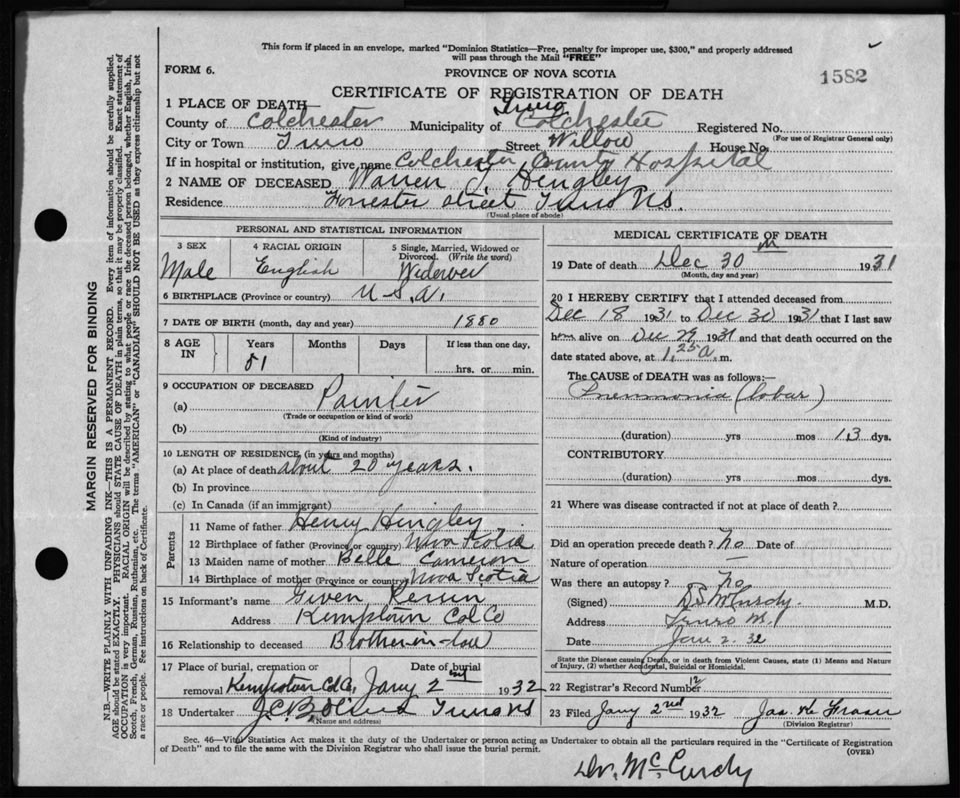 This form if placed in an envelope, marked "Dominion Statistics—Free, penalty for improper use, $300," and properly addressed
will pass through the Mail "FREE"
FORM 6.
PROVINCE OF NOVA SCOTIA
1582
CERTIFICATE OF REGISTRATION OF DEATH
1 PLACE OF DEATH—
Truro
County of Colchester Municipality of Colchester Registered No.
(For use of Registrar General only)
City or Town Truro Street Willow House No.
If in hospital or institution, give name Colchester County Hospital
2 NAME OF DECEASED Warren J. Hingley
Residence Forrester Street Truro N.S.
(Usual place of abode)
PERSONAL AND STATISTICAL INFORMATION
3 SEX 4 RACIAL ORIGIN 5 Single, Married, Widowed or Divorced. (Write the word)
Male English Widower
6 BIRTHPLACE (Province or country) U.S.A.
7 DATE OF BIRTH (month, day and year) 1880
8 AGE IN Years Months Days If less than one day,
51 hrs. or min.
9 OCCUPATION OF DECEASED
(a) Painter
(Trade or occupation or kind of work)
(b)
(Kind of industry)
10 LENGTH OF RESIDENCE, (in years and months)
(a) At place of death about 20 years.
(b) In province
(c) In Canada (if an immigrant)
Parents
11 Name of father Henry Hingley
12 Birthplace of father (Province or country) Nova Scotia
13 Maiden name of mother Belle Cameron
14 Birthplace of mother (Province or country) Nova Scotia
15 Informant's name
Address Kemptown Col Co
16 Relationship to deceased Brother-in-law
17 Place of burial, cremation or removal Kemptown Col Co. Date of burial Jany 2nd 1932
18 Undertaker Truro NS
(Name and address)
MEDICAL CERTIFICATE OF DEATH
19 Date of death Dec 30th 1931
(Month, day and year)
20 I HEREBY CERTIFY that I attended deceased from
Dec 18 1931 to Dec 30 1931 that I last saw
him alive on Dec 29 1931 and that death occurred on the
date stated above, at 1.25 a. m.
The CAUSE of DEATH was as follows:—
Pneumonia (lobar)
(duration) yrs mos 13 dys.
CONTRIBUTORY
(duration) yrs mos dys.
21 Where was disease contracted if not at place of death?
Did an operation precede death? No Date of
Nature of operation
Was there an autopsy? No
(Signed) D S McCurdy. M.D.
Address Truro N.S
Date Jan 2. 32
State the Disease causing Death, or in death from Violent Causes, state (1) Means and Nature
of Injury, (2) whether Accidental, Suicidal or Homicidal.
22 Registrar's Record Number 12
23 Filed Jany 2nd 1932 Jas. Fraser
(Division Registrar)
Sec. 46—Vital Statistics Act makes it the duty of the Undertaker or person acting as Undertaker to obtain all the particulars required in the "Certificate of Registration
of Death" and to file the same with the Division Registrar who shall issue the burial permit.
(OVER)
Dr. McCurdy
MARGIN RESERVED FOR BINDING
N.B.—WRITE PLAINLY WITH UNFADING INK—THIS IS A PERMANENT RECORD. Every item of information should be carefully supplied.
AGE should be stated EXACTLY. PHYSICIANS should STATE CAUSE OF DEATH in plain terms, so that it may be properly classified. Exact statement of
OCCUPATION is very important. RACIAL ORIGIN will be described by stating to what people or race the deceased person belonged, whether English, Irish,
Scotch, French, German, Russian, Ruthenian, etc. The terms "AMERICAN" or "CANADIAN" SHOULD NOT BE USED as they express citizenship but not
a race or people. See instructions on back of Certificate.